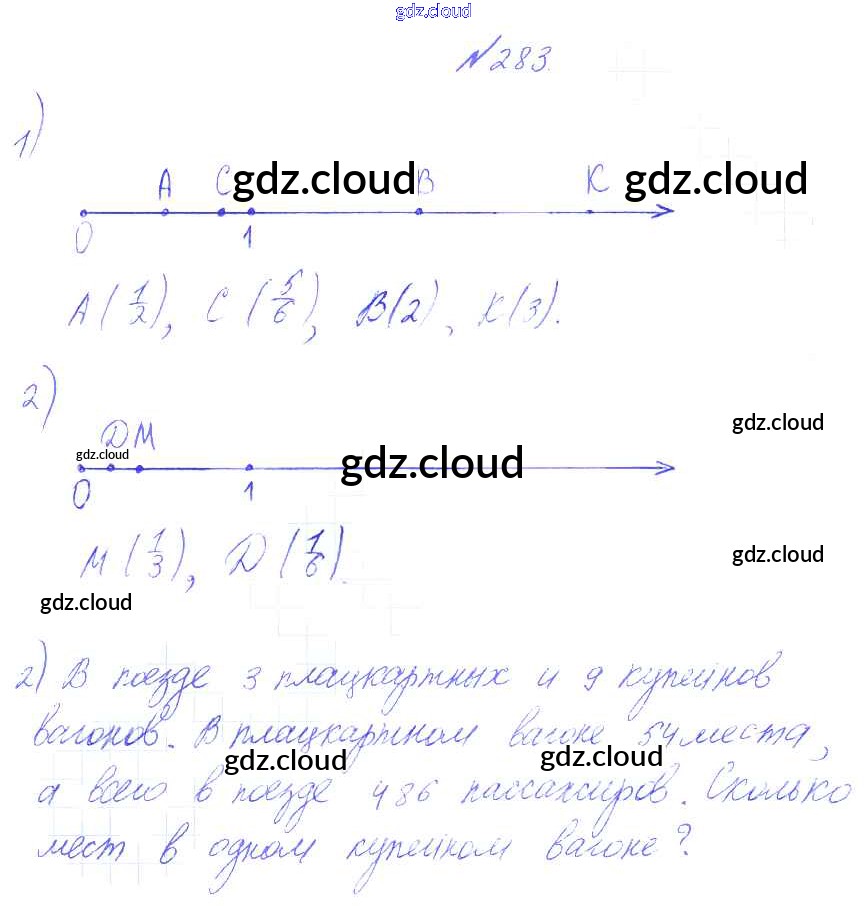 gdz.cloud
№283.
1)
A C gdz.cloud B K gdz.cloud
0 1
A(1/2), C(5/6), B(2), K(3).
2)
gdz.cloud
D M
gdz.cloud gdz.cloud
0 1
M(1/3), D(1/6).
gdz.cloud
gdz.cloud
2) В поезде 3 плацкартных и 9 купейнов
вагонов. В плацкартном вагоне 54 места,
gdz.cloud gdz.cloud
а всего в поезде 486 пассажиров. Сколько
мест в одном купейном вагоне?